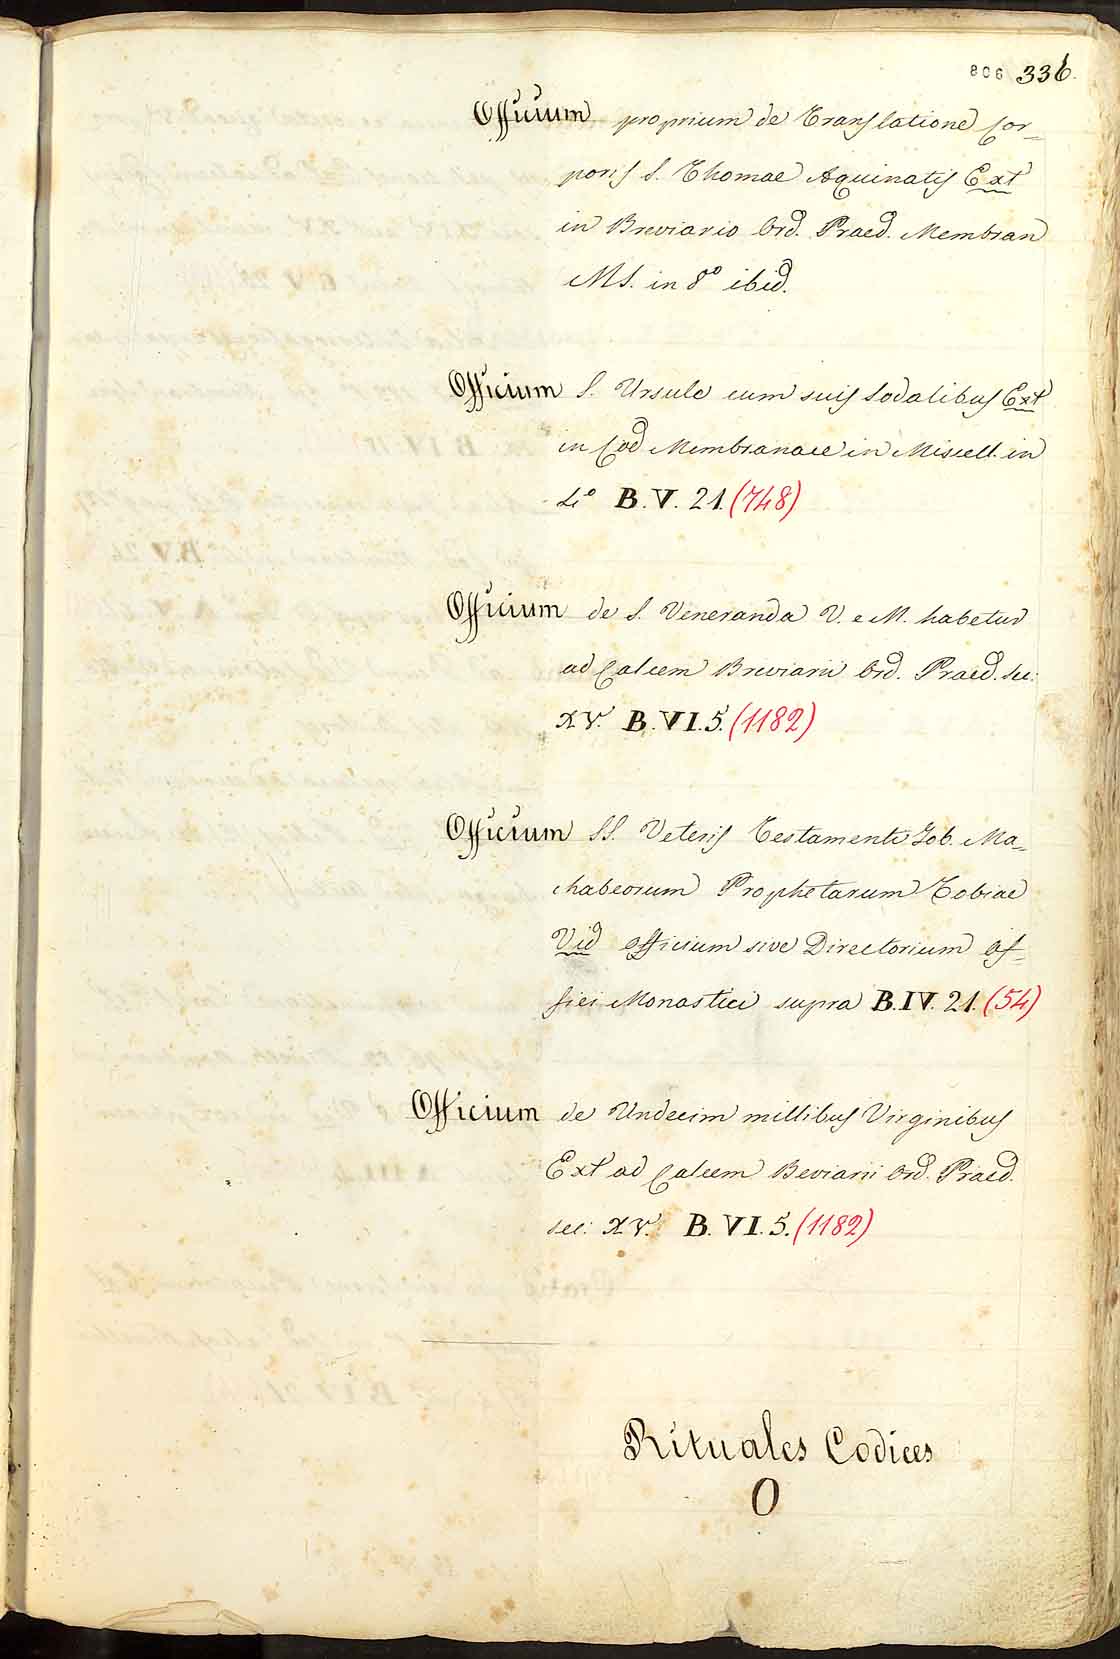 806 336.
Officium proprium de Translatione Cor=
poris S. Thomae Aquinatis Ext
in Breviario Ord. Praed. Membran
MS. in 8° ibid.
Officium S. Ursule cum suis sodalibus Ext
in Cod Membranace in Miscell. in
4° B. V. 21. (748)
Officium de S. Veneranda V. e M. habetur
ad Calcem Breviarii Ord. Praed. sec:
XV. B. VI. 5. (1182)
Officium SS. Veteris Testamenti Job. Ma=
chabeorum Prophetarum Tobiae
Vid Officium sive Directorium Of=
ficii Monastici supra B. IV. 21. (54)
Officium de Undecim millibus Virginibus
Ext ad Calcem Beviarii Ord. Praed.
sec: XV. B. VI. 5. (1182)
Rituales Codices
O